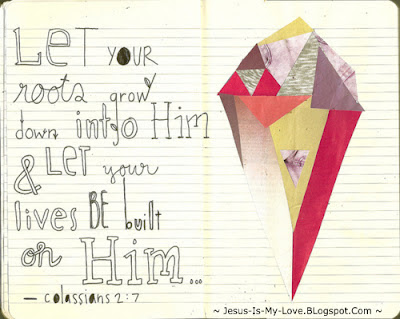 LET YOUR
roots grow
down into Him
& LET your
lives BE built
on Him...
— colassians 2:7
~ Jesus-Is-My-Love.BlogSpot.Com ~